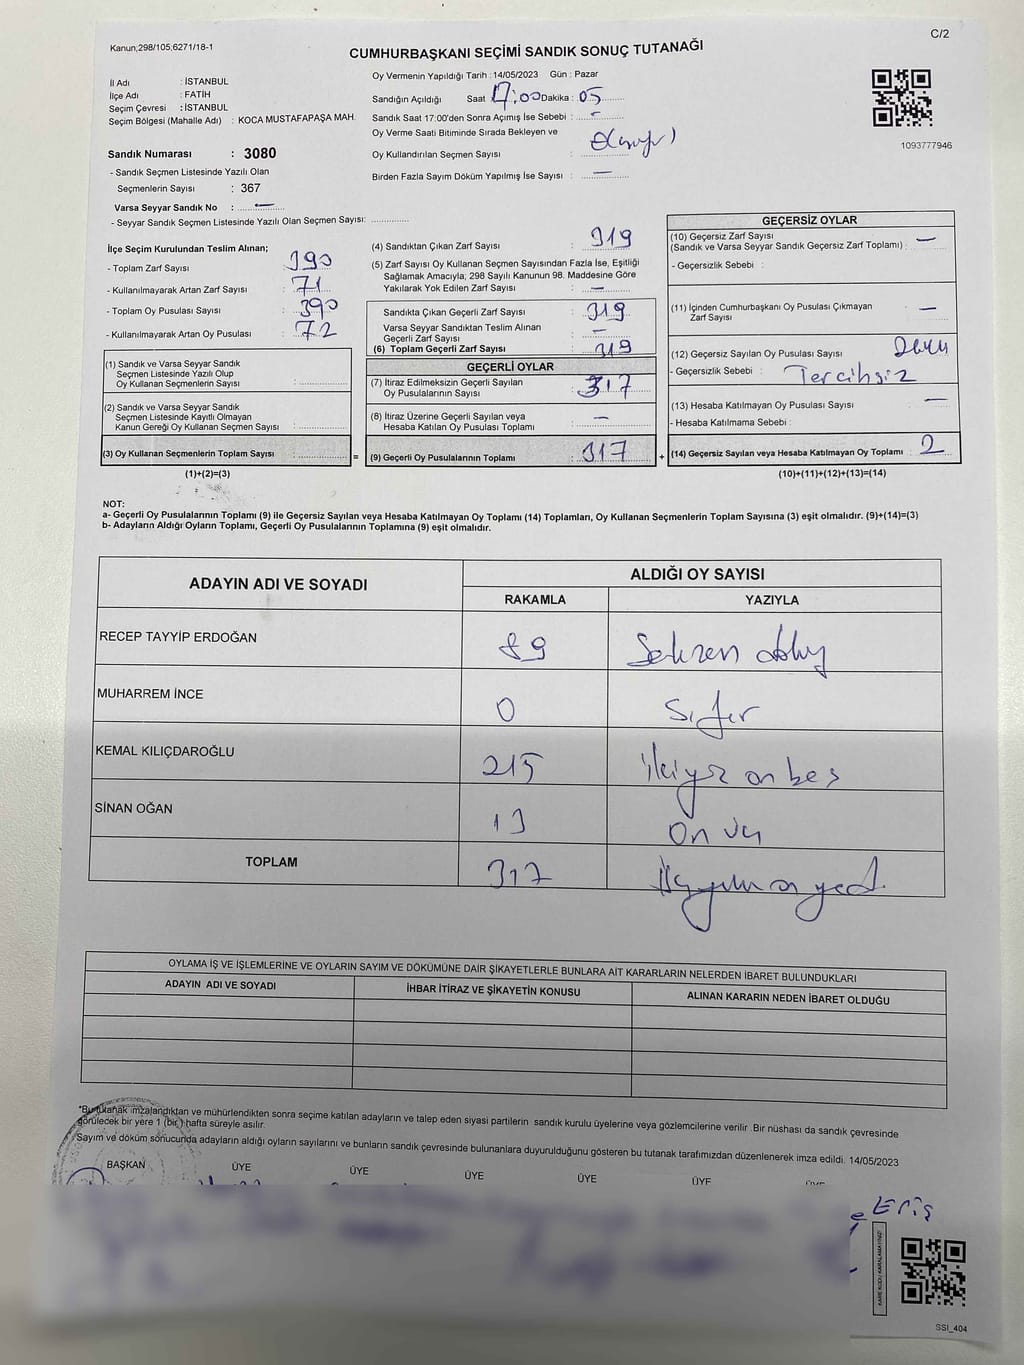 Kanun;298/105;6271/18-1
C/2
CUMHURBAŞKANI SEÇİMİ SANDIK SONUÇ TUTANAĞI
İl Adı : İSTANBUL
İlçe Adı : FATİH
Seçim Çevresi : İSTANBUL
Seçim Bölgesi (Mahalle Adı) : KOCA MUSTAFAPAŞA MAH.
Sandık Numarası : 3080
- Sandık Seçmen Listesinde Yazılı Olan
Seçmenlerin Sayısı : 367
Varsa Seyyar Sandık No : —
- Seyyar Sandık Seçmen Listesinde Yazılı Olan Seçmen Sayısı: ...............
Oy Vermenin Yapıldığı Tarih : 14/05/2023 Gün : Pazar
Sandığın Açıldığı Saat 17:00 Dakika : 05
Sandık Saat 17:00'den Sonra Açılmış İse Sebebi : —
Oy Verme Saati Bitiminde Sırada Bekleyen ve
Oy Kullandırılan Seçmen Sayısı :
Birden Fazla Sayım Döküm Yapılmış İse Sayısı : —
1093777946
İlçe Seçim Kurulundan Teslim Alınan;
- Toplam Zarf Sayısı : 390
- Kullanılmayarak Artan Zarf Sayısı : 71
- Toplam Oy Pusulası Sayısı : 390
- Kullanılmayarak Artan Oy Pusulası : 72
(1) Sandık ve Varsa Seyyar Sandık
Seçmen Listesinde Yazılı Olup
Oy Kullanan Seçmenlerin Sayısı :
(2) Sandık ve Varsa Seyyar Sandık
Seçmen Listesinde Kayıtlı Olmayan
Kanun Gereği Oy Kullanan Seçmen Sayısı :
(3) Oy Kullanan Seçmenlerin Toplam Sayısı : =
(1)+(2)=(3)
(4) Sandıktan Çıkan Zarf Sayısı : 319
(5) Zarf Sayısı Oy Kullanan Seçmen Sayısından Fazla İse, Eşitliği
Sağlamak Amacıyla; 298 Sayılı Kanunun 98. Maddesine Göre
Yakılarak Yok Edilen Zarf Sayısı : —
Sandıkta Çıkan Geçerli Zarf Sayısı : 319
Varsa Seyyar Sandıktan Teslim Alınan
Geçerli Zarf Sayısı : —
(6) Toplam Geçerli Zarf Sayısı : 319
GEÇERLİ OYLAR
(7) İtiraz Edilmeksizin Geçerli Sayılan
Oy Pusulalarının Sayısı : 317
(8) İtiraz Üzerine Geçerli Sayılan veya
Hesaba Katılan Oy Pusulası Toplamı : —
(9) Geçerli Oy Pusulalarının Toplamı : 317 +
GEÇERSİZ OYLAR
(10) Geçersiz Zarf Sayısı
(Sandık ve Varsa Seyyar Sandık Geçersiz Zarf Toplamı) : —
- Geçersizlik Sebebi :
(11) İçinden Cumhurbaşkanı Oy Pusulası Çıkmayan
Zarf Sayısı : —
(12) Geçersiz Sayılan Oy Pusulası Sayısı
- Geçersizlik Sebebi : Tercihsiz
(13) Hesaba Katılmayan Oy Pusulası Sayısı : —
- Hesaba Katılmama Sebebi :
(14) Geçersiz Sayılan veya Hesaba Katılmayan Oy Toplamı : 2
(10)+(11)+(12)+(13)=(14)
NOT:
a- Geçerli Oy Pusulalarının Toplamı (9) ile Geçersiz Sayılan veya Hesaba Katılmayan Oy Toplamı (14) Toplamları, Oy Kullanan Seçmenlerin Toplam Sayısına (3) eşit olmalıdır. (9)+(14)=(3)
b- Adayların Aldığı Oyların Toplamı, Geçerli Oy Pusulalarının Toplamına (9) eşit olmalıdır.
ADAYIN ADI VE SOYADI ALDIĞI OY SAYISI
RAKAMLA YAZIYLA
RECEP TAYYİP ERDOĞAN 89 Seksen dokuz
MUHARREM İNCE 0 Sıfır
KEMAL KILIÇDAROĞLU 215 ikiyüz on beş
SİNAN OĞAN 13 On üç
TOPLAM 317 üçyüz on yedi
OYLAMA İŞ VE İŞLEMLERİNE VE OYLARIN SAYIM VE DÖKÜMÜNE DAİR ŞİKAYETLERLE BUNLARA AİT KARARLARIN NELERDEN İBARET BULUNDUKLARI
ADAYIN ADI VE SOYADI İHBAR İTİRAZ VE ŞİKAYETİN KONUSU ALINAN KARARIN NEDEN İBARET OLDUĞU
"Bu tutanak imzalandıktan ve mühürlendikten sonra seçime katılan adayların ve talep eden siyasi partilerin sandık kurulu üyelerine veya gözlemcilerine verilir. Bir nüshası da sandık çevresinde
görülecek bir yere 1 (bir) hafta süreyle asılır.
Sayım ve döküm sonucunda adayların aldığı oyların sayılarını ve bunların sandık çevresinde bulunanlara duyurulduğunu gösteren bu tutanak tarafımızdan düzenlenerek imza edildi. 14/05/2023
BAŞKAN ÜYE ÜYE ÜYE ÜYE ÜYE
Eriş
KARE KODU KARALAMAYINIZ!
SSİ_404